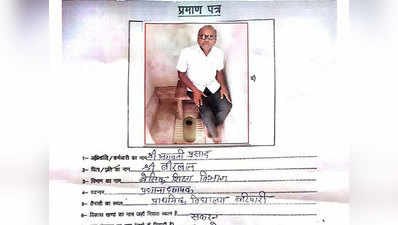 प्रमाण पत्र
1- अधिकारी/कर्मचारी का नाम श्री भगवती प्रसाद
2- पिता/पति का नाम श्री बीरबल
3- विभाग का नाम बेसिक शिक्षा विभाग
4- पदनाम प्रधानाध्यापक
5- तैनाती का स्थान प्राथमिक विद्यालय
6- विकास खण्ड का नाम जहाँ निवास स्थान है सकरन